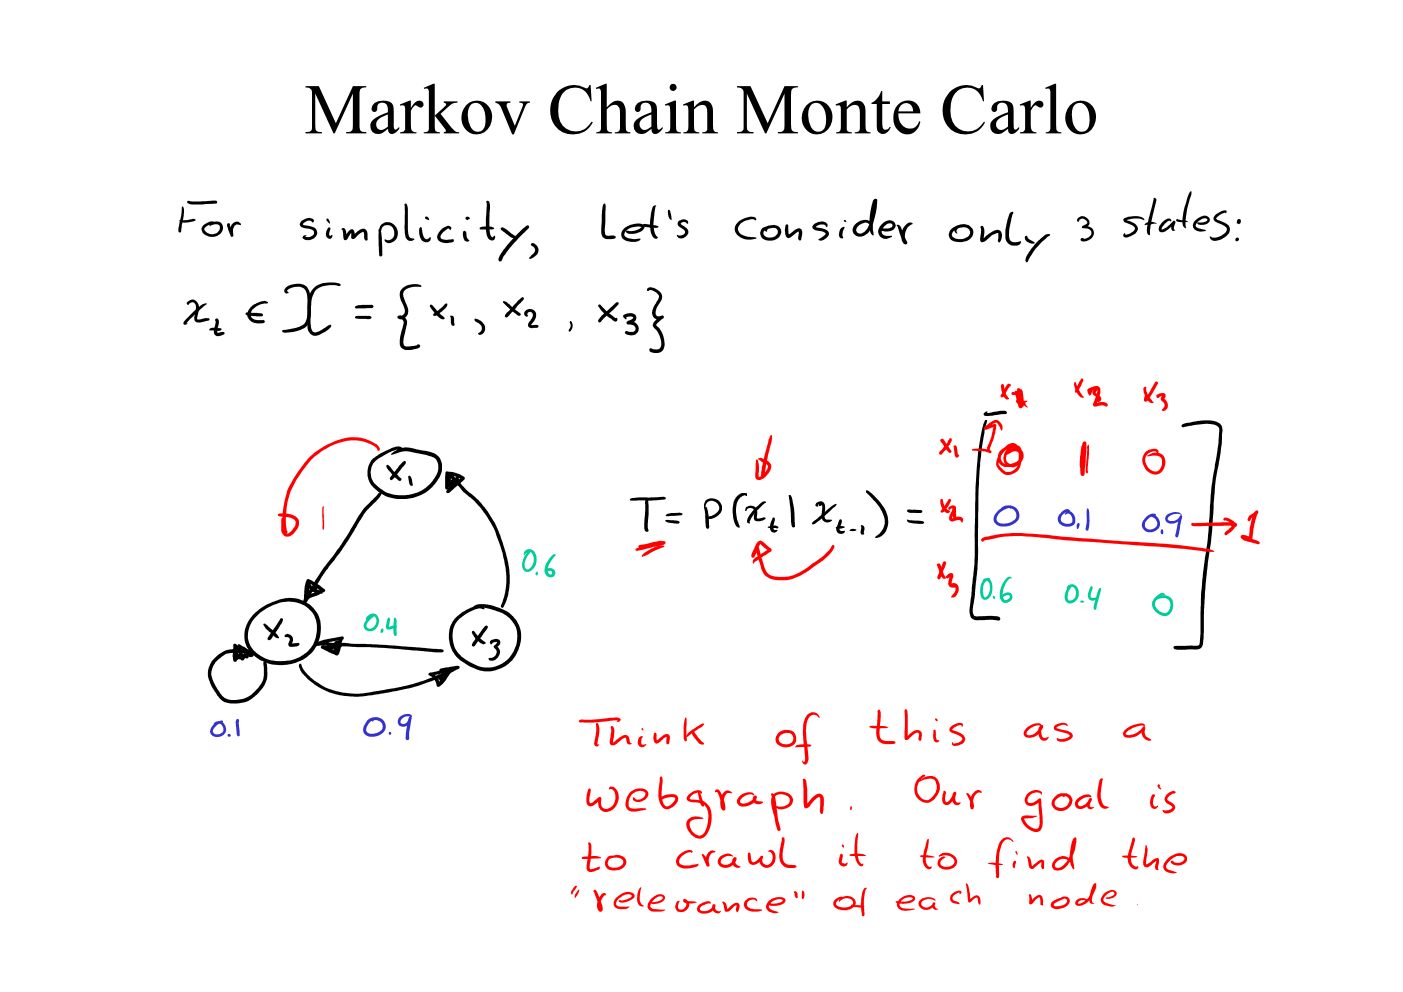 Markov Chain Monte Carlo
For simplicity, Let's consider only 3 states:
x_t ∈ X = {x₁, x₂, x₃}
x₁ x₂ x₃
x₁ 0 1 0
T = P(x_t | x_{t-1}) = x₂ 0 0.1 0.9 → 1
x₃ 0.6 0.4 0
x₁
1
0.6
x₂ 0.4 x₃
0.1 0.9
Think of this as a
webgraph. Our goal is
to crawl it to find the
"relevance" of each node.